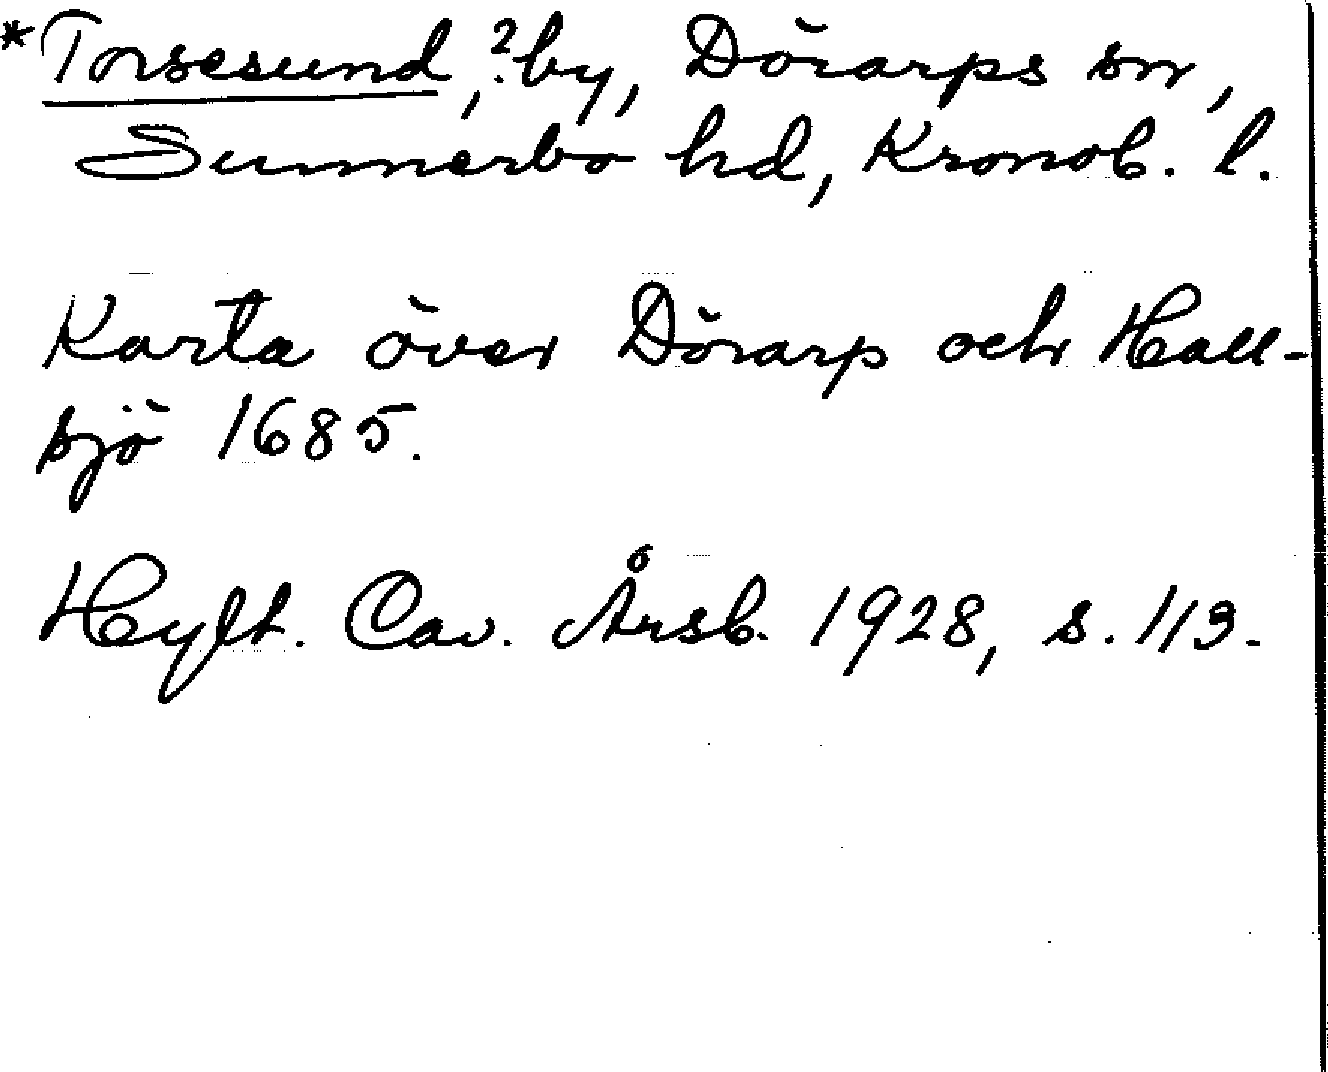 *Torsesund, ?by, Dörarps sn,
Sunnerbo hd, Kronob. l.
Karta över Dörarp och Hall-
sjö 1685.
Hylt. Cav. Årsb. 1928, s. 113.